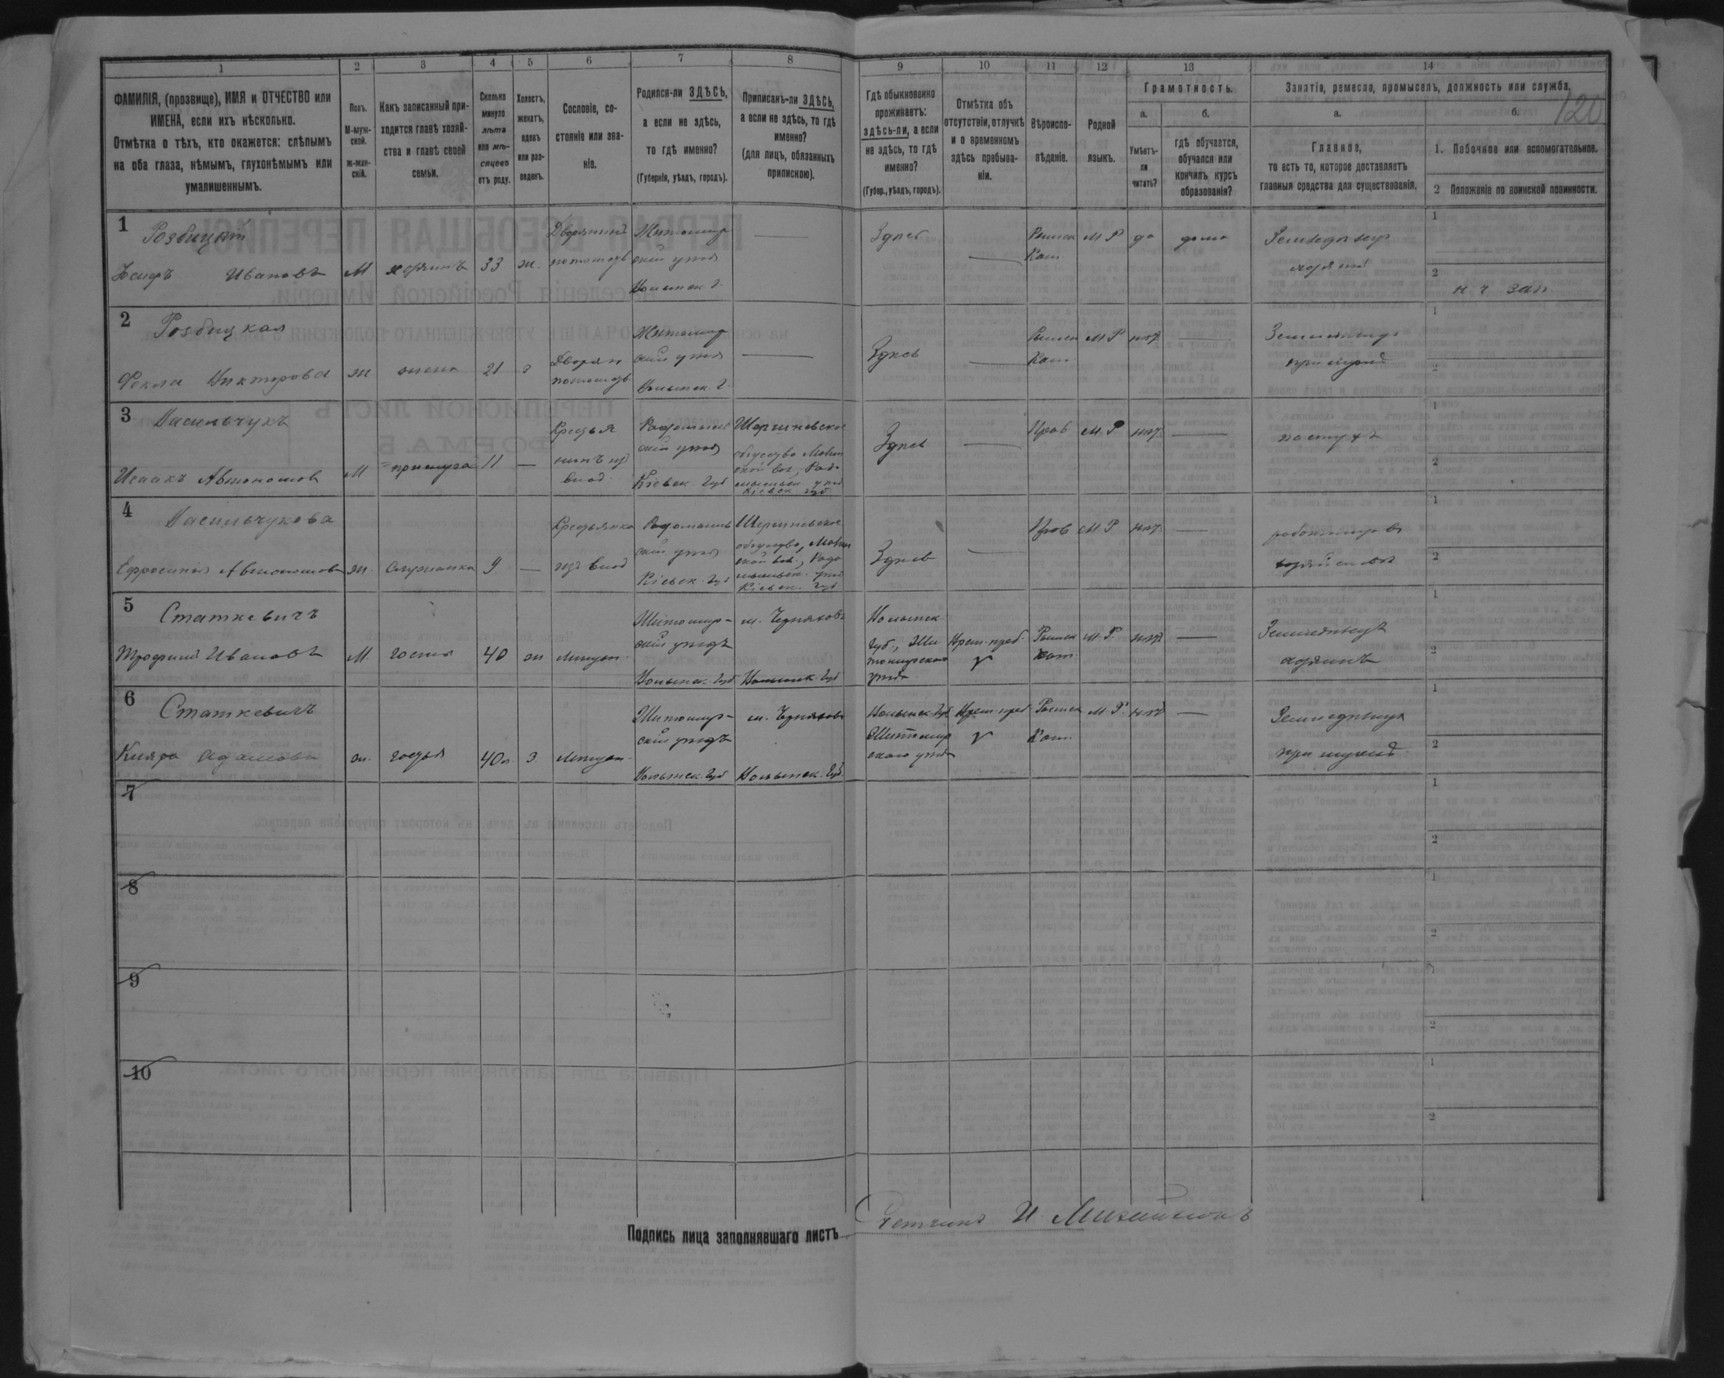 120
1 2 3 4 5 6 7 8 9 10 11 12 13 14
ФАМИЛІЯ, (прозвище), ИМЯ и ОТЧЕСТВО или
ИМЕНА, если ихъ нѣсколько.
Отмѣтка о тѣхъ, кто окажется: слѣпымъ
на оба глаза, нѣмымъ, глухонѣмымъ или
умалишеннымъ.
Полъ.
М-муж-
ской.
Ж-жен-
скій.
Какъ записанный при-
ходится главѣ хозяй-
ства и главѣ своей
семьи.
Сколько
минуло
лѣтъ
или мѣ-
сяцевъ
отъ роду.
Холостъ,
женатъ,
вдовъ
или раз-
веденъ.
Сословіе, со-
стояніе или зва-
ніе.
Родился-ли ЗДѢСЬ,
а если не здѣсь,
то гдѣ именно?
(Губернія, уѣздъ, городъ).
Приписанъ-ли ЗДѢСЬ,
а если не здѣсь, то гдѣ
именно?
(для лицъ, обязанныхъ
припискою).
Гдѣ обыкновенно
проживаетъ:
здѣсь-ли, а если
не здѣсь, то гдѣ
именно?
(Губер., уѣздъ, городъ).
Отмѣтка объ
отсутствіи, отлучкѣ
и о временномъ
здѣсь пребыва-
ніи.
Вѣроиспо-
вѣданіе.
Родной
языкъ.
Грамотность.
а.
Умѣетъ-
ли
читать?
б.
гдѣ обучается,
обучался или
кончилъ курсъ
образованія?
Занятія, ремесло, промыселъ, должность или служба.
а.
Главное,
то есть то, которое доставляетъ
главныя средства для существованія.
б.
1. Побочное или вспомогательное.
2 Положеніе по воинской повинности.
1
Іосифъ Ивановъ
М
хозяинъ
33
ж.
Дворянинъ
Житомир
скій уѣзд
Волынск. г.
Здѣсь
Римск
Кат.
М Р
да
дома
2
Розбицкая
Фекла Викторова
ж
жена
21
з
Дворян
Житомир
скій уѣзд
Волынск. г.
Здѣсь
Кат.
М Р
нѣт
3
Васильчукъ
Исаакъ Автономов
М
прислуга
11
скій уѣзд
Кіевск. Губ
Здѣсь
Прав
М Р
нѣт
пастухъ
4
Васильчукова
Ефросинія Автономова
ж.
служанка
9
Крестьянка
скій уѣзд
Кіевск. Губ
Здѣсь
Прав
М Р
нѣт
5
Статкевичъ
Трофимъ Ивановъ
М
гость
40
ж
Мещан.
Житомир-
скій уѣздъ
Волынск. Губ
м. Черняховъ
Волынск. Губ
Волынск.
Губ., Жи
томирскаго
уѣзда
Врем. преб.
Римск
Кат.
М Р
нѣт
хозяинъ
6
Статкевичъ
Клара Адамова
ж.
гостья
40
з
Мещан.
Житомир-
скій уѣздъ
Волынск. Губ
м. Черняховъ
Волынск. Губ.
Волынск. Губ
Житомир
скаго уѣзда
Врем. преб
Римск
Кат.
М Р.
нѣт
при мужѣ
7
8
9
10
Подпись лица заполнявшаго листъ